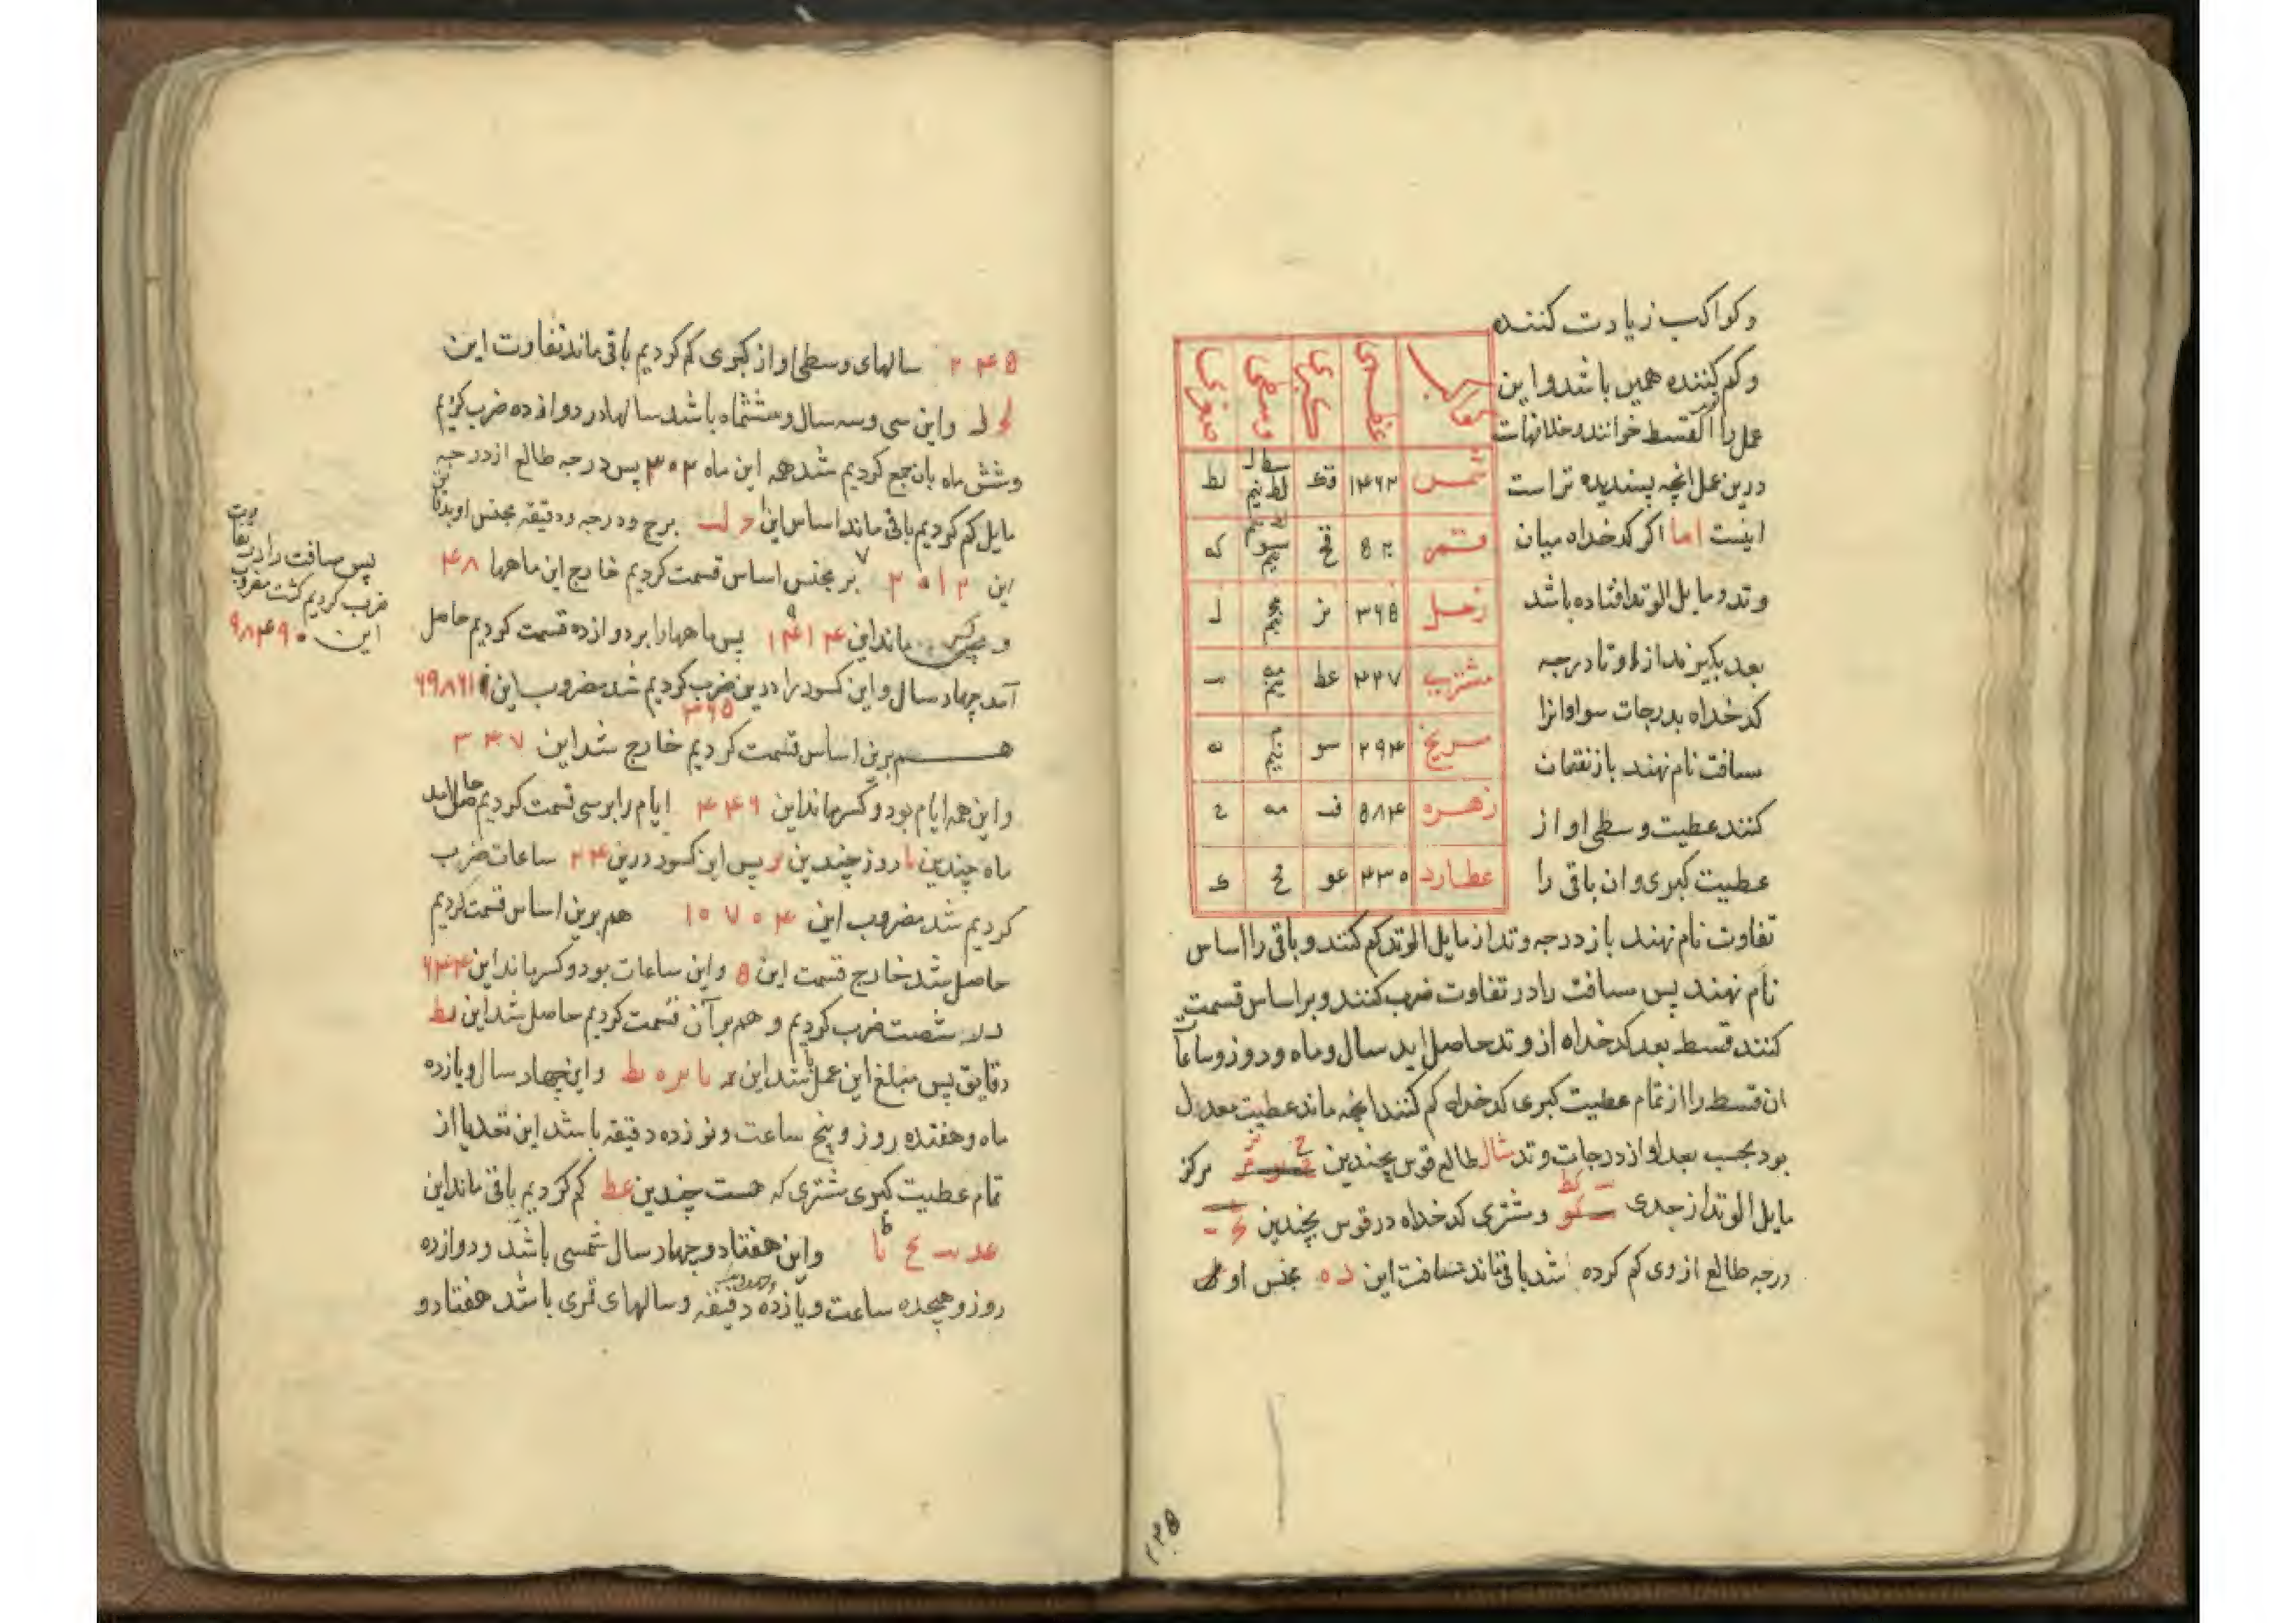 و کواکب زیادت کننده
و کم کننده همین باشد و این
عمل را قسط خوانند و خلافهات
درین عمل انچه پسندیده تر است
اینست اما اکر کدخداه میان
وتد و مایل الوتد افتاده باشد
بعد بکیرند از او تا درجه
کدخداه بدرجات سوا و انرا
مسافت نام نهند باز نقصان
کنند عطیت وسطی او از
عطیت کبری و ان باقی را
کواکب عظمی کبری وسطی صغری
شمس ۱۴۶۲ قک لط نیم لط
قمر ۵۲۰ قح سو نیم که
زحل ۳۶۵ نز مج نیم ل
مشتری ۴۲۷ عط مه نیم
مریخ ۲۹۴ سو نیم ه
زهره ۵۸۴ ف مه ح
عطارد ۴۳۰ عو مح ک
تفاوت نام نهند باز درجه وتد از مایل الوتد کم کنند و باقی را اساس
نام نهند پس مسافت را در تفاوت ضرب کنند و بر اساس قسمت
کنند قسط بعد کدخداه از وتد حاصل اید سال و ماه و روز و ساعات
ان قسط را از تمام عطیت کبری کدخداه کم کنند انچه ماند عطیت معدل
بود بحسب بعد او از درجات وتد مثال طالع قوس چندین مرکز
مایل الوتد از جدی کط و مشتری کدخداه در قوس چندین
درجه طالع از وی کم کرده شد باقی ماند مسافت این د ه بجنس او
۲۲۵
۲۴۵ سالهای وسطی او از کبری کم کردیم باقی ماند تفاوت این
لح ل و این سی و سه سال و ششماه باشد سالها در دوازده ضرب کردیم
و شش ماه بان جمع کردیم شد همه این ماه ۴۰۲ پس درجه طالع از درجه
مایل کم کردیم باقی ماند اساس این برج و درجه و دقیقه بجنس او بدقایق
این ۲۰۱۲ بر بجنس اساس قسمت کردیم خارج این ماهها ۴۸
و کسر ماند این ۱۹۱۴ پس ماهها را بر دوازده قسمت کردیم حاصل
آمد چهار سال و این کسور را درین ۳۶۵ ضرب کردیم شد مضروب این ۶۹۸۶۱۰
هم برین اساس قسمت کردیم خارج شد این ۳۴۷
و این همه ایام بود و کسر ماند این ۴۴۶ ایام را بر سی قسمت کردیم حاصل امد
ماه چندین یا روز چندین یز پس این کسور درین ۲۴ ساعات ضرب
کردیم شد مضروب این ۱۰۷۰۴ هم برین اساس قسمت کردیم
حاصل شد خارج قسمت این ۵ و این ساعات بود و کسر ماند این ۶۴۴
در شصت ضرب کردیم و هم بر آن قسمت کردیم حاصل شد این یط
دقایق پس مبلغ این عمل باشد این د یا یز ه یط و این چهار سال و یازده
ماه و هفتده روز و پنج ساعت و نوزده دقیقه باشد این تعدیل از
تمام عطیت کبری مشتری که هست چندین عط کم کردیم باقی ماند این
عد یب یح یا و این هفتاد و چهار سال شمسی باشد و دوازده
روز و هجده ساعت و یازده دقیقه و سالهای قمری باشد هفتاد و
پس مسافت را در تفاوت
ضرب کردیم کشت مضروب
این ۹۸۴۹۰